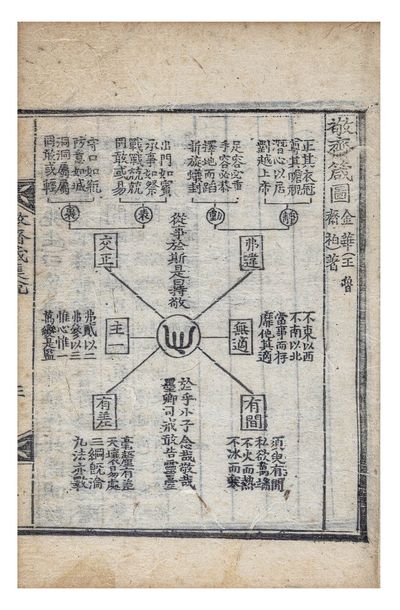 敬齋箴圖
金華王魯
齋柏著
正其衣冠
尊其瞻視
潛心以居
對越上帝
靜
足容必重
手容必恭
擇地而蹈
折旋蟻封
動
出門如賓
承事如祭
戰戰兢兢
罔敢或易
表
守口如瓶
防意如城
洞洞屬屬
罔敢或輕
裏
弗違
從事於斯是曰持敬
交正
不東以西
不南以北
當事而存
靡他其適
無適
心
主一
弗貳以二
弗參以三
惟心惟一
萬變是監
有間
須臾有間
私欲萬端
不火而熱
不冰而寒
於乎小子念哉敬哉
墨卿司戒敢告靈臺
有差
毫釐有差
天壤易處
三綱旣淪
九法亦斁